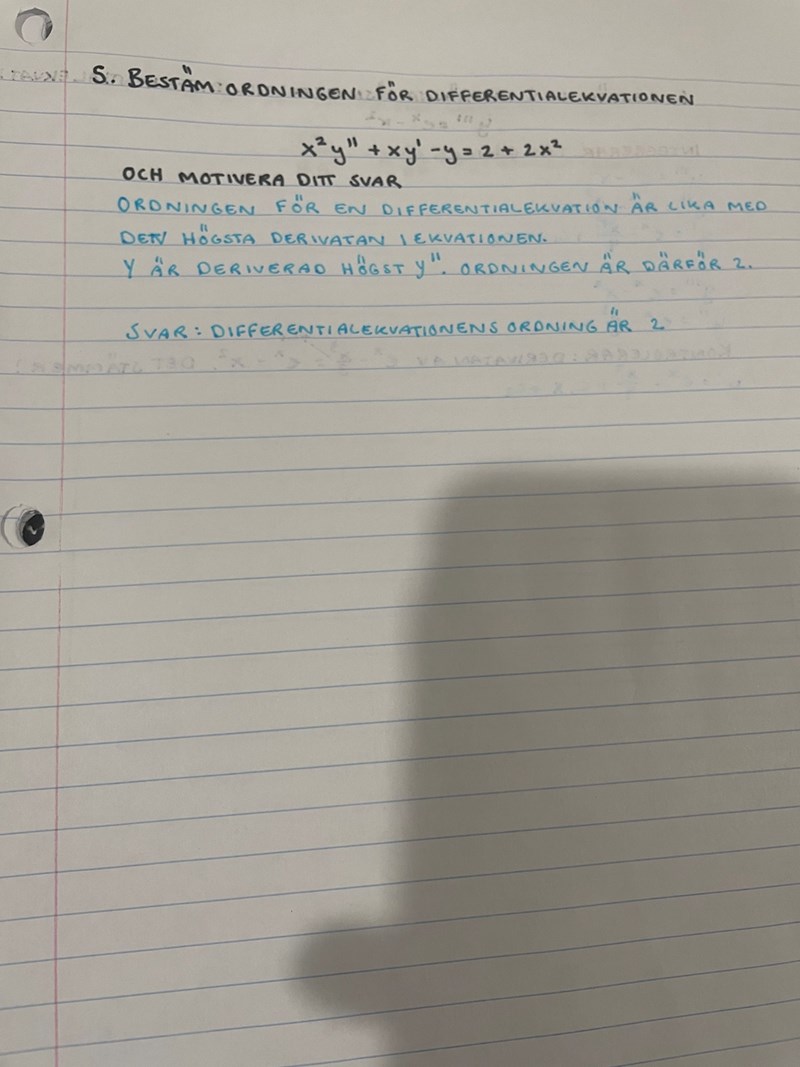 5. BESTÄM ORDNINGEN FÖR DIFFERENTIALEKVATIONEN
x²y" + xy' - y = 2 + 2x²
OCH MOTIVERA DITT SVAR
ORDNINGEN FÖR EN DIFFERENTIALEKVATION ÄR LIKA MED
DEN HÖGSTA DERIVATAN I EKVATIONEN.
Y ÄR DERIVERAD HÖGST Y". ORDNINGEN ÄR DÄRFÖR 2.
SVAR: DIFFERENTIALEKVATIONENS ORDNING ÄR 2